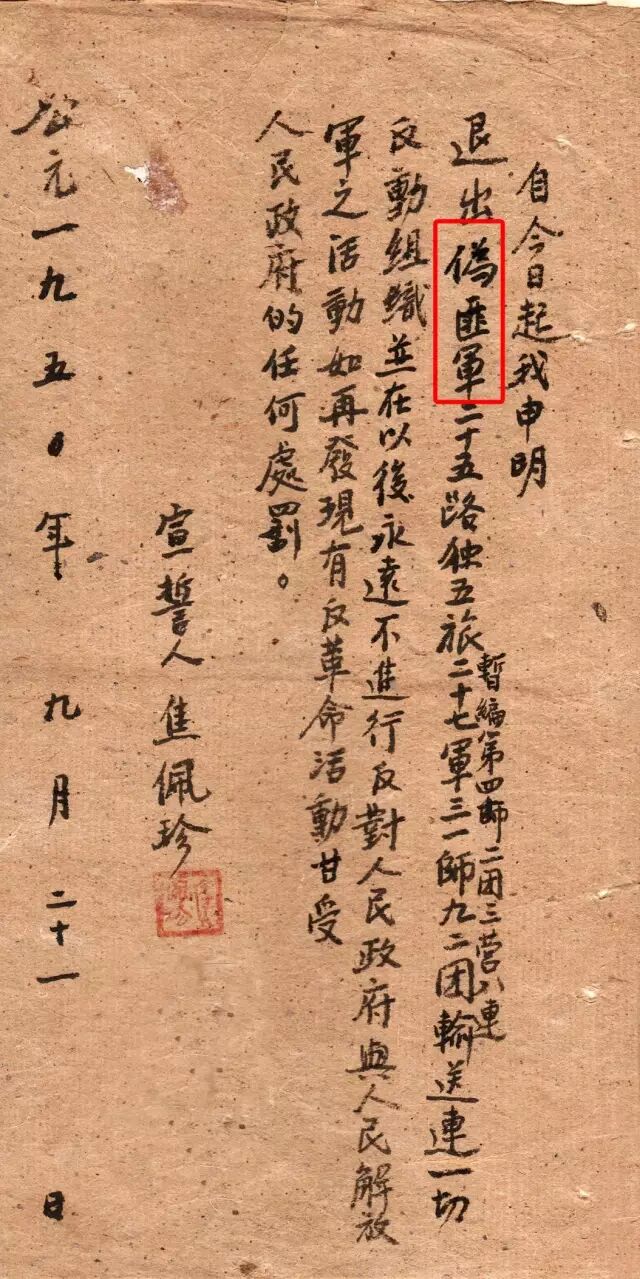 自今日起我申明
退出偽匪軍二十五路独五旅二十七軍三一師九二团輸送連一切
暫編第四師二团三营八連
反動組織並在以後永遠不進行反對人民政府與人民解放
軍之活動如再發現有反革命活動甘受
人民政府的任何處罰。
宣誓人焦佩珍
公元一九五0年九月二十一日